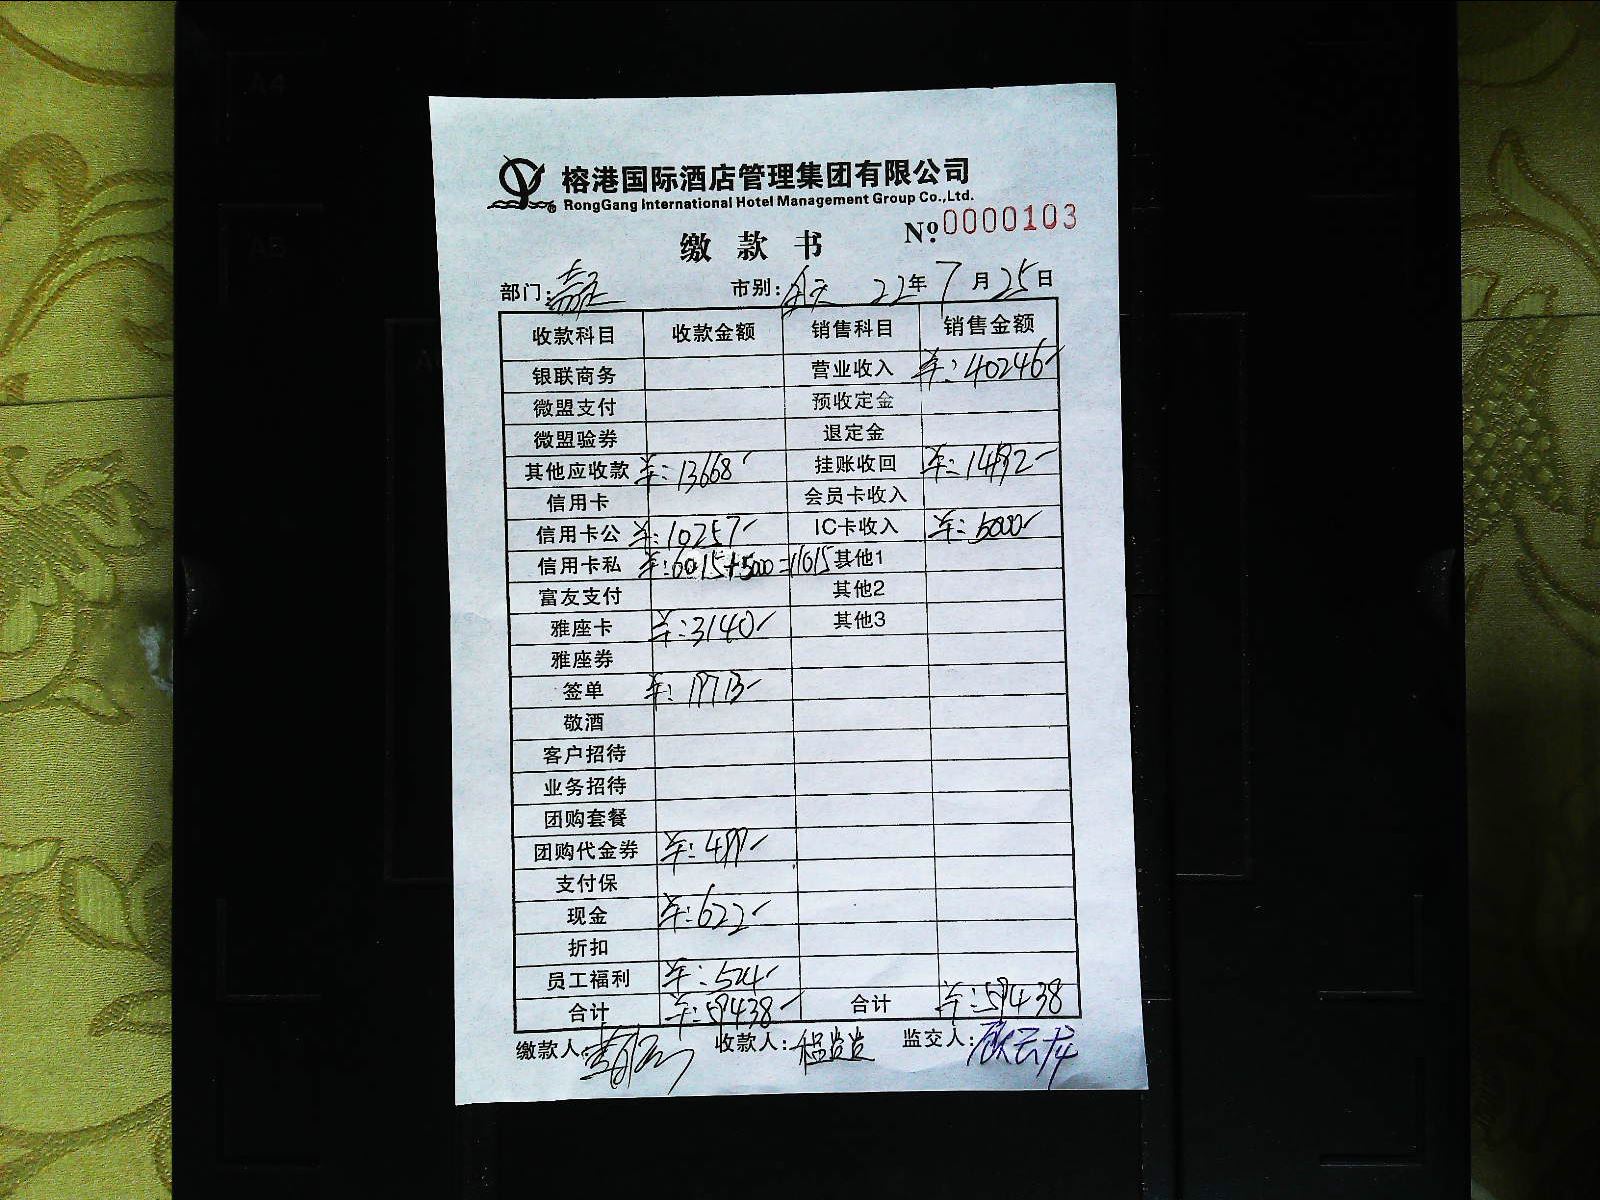 榕港国际酒店管理集团有限公司
RongGang International Hotel Management Group Co.,Ltd.
No.0000103
缴款书
部门: 市别: 22年7月25日
收款科目 收款金额 销售科目 销售金额
银联商务 营业收入 ¥:40246-
微盟支付 预收定金
微盟验券 退定金
其他应收款 ¥:13668- 挂账收回 ¥:1492-
信用卡 会员卡收入
信用卡公 ¥:10257- IC卡收入 ¥:5000-
信用卡私 ¥:6015+5000=11015 其他1
富友支付 其他2
雅座卡 ¥:3140- 其他3
雅座券
签单
敬酒
客户招待
业务招待
团购套餐
团购代金券 ¥:499-
支付保
现金 ¥:622-
折扣
员工福利 ¥:524-
合计 ¥:59438- 合计 ¥:59438
缴款人: 收款人: 监交人: